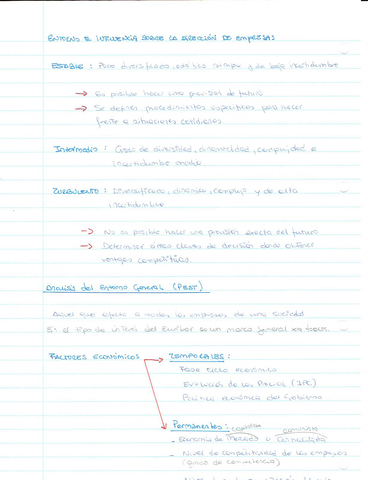 ENTORNO E INFLUENCIA SOBRE LA DIRECCIÓN DE EMPRESAS
ESTABLE : Poco diversificado, estático simple y de baja incertidumbre
→ Es posible hacer una previsión de futuro
→ Se definen procedimientos específicos para hacer
frente a situaciones cotidianas.
Intermedio : Grado de diversidad, dinamicidad, complejidad e
incertidumbre
TURBULENTO : Diversificado, dinámico, complejo y de alta
incertidumbre.
→ No es posible hacer una previsión exacta del futuro
→ Determinar áreas claves de decisión donde obtener
ventajas competitivas.
Análisis del Entorno General (PEST)
Aquel que afecta a todas las empresas de una sociedad
Es el tipo de interés del Euribor es un marco general
FACTORES ECONÓMICOS → TEMPORALES :
Fase ciclo económico
Evolución de los Precios (IPC)
Política económica del Gobierno
Permanentes : capitalista comunista
- Economía de Mercado o Centralizada
- Nivel de competitividad de las empresas
(grado de competencia)